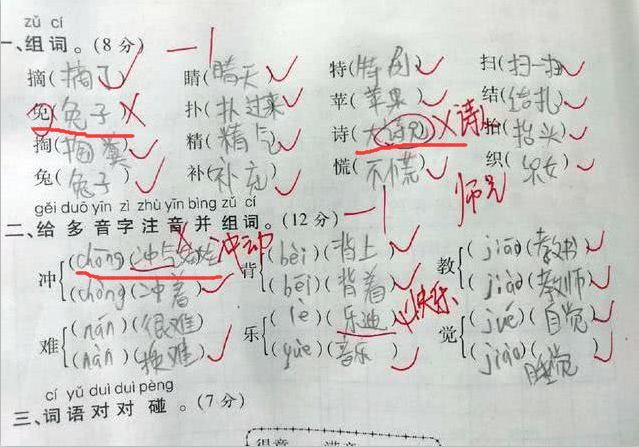 zǔ cí
一、组词。(8分) —1
摘(摘了) 睛(晴天) 特(特别) 扫(扫一扫)
免(兔子) 扑(扑过来) 苹(苹果) 结(结扎)
掏(掏粪) 精(精气) 诗(大诗兄) 诗 抬(抬头)
兔(兔子) 补(补充) 慌(不慌) 织(织女)
师兄
gěi duō yīn zì zhù yīn bìng zǔ cí
二、给多音字注音并组词。(12分) —1
冲 (chōng)(冲气娃娃) 冲动 背 (bēi)(背上) 教 (jiāo)(教书)
(chòng)(冲着) (bēi)(背着) (jiào)(教师)
难 (nán)(很难) 乐 (lè)(乐迪) 快乐 觉 (jué)(自觉)
(nàn)(难) (yuè)(音乐) (jiào)(睡觉)
cí yǔ duì duì pèng
三、词语对对碰。(7分)